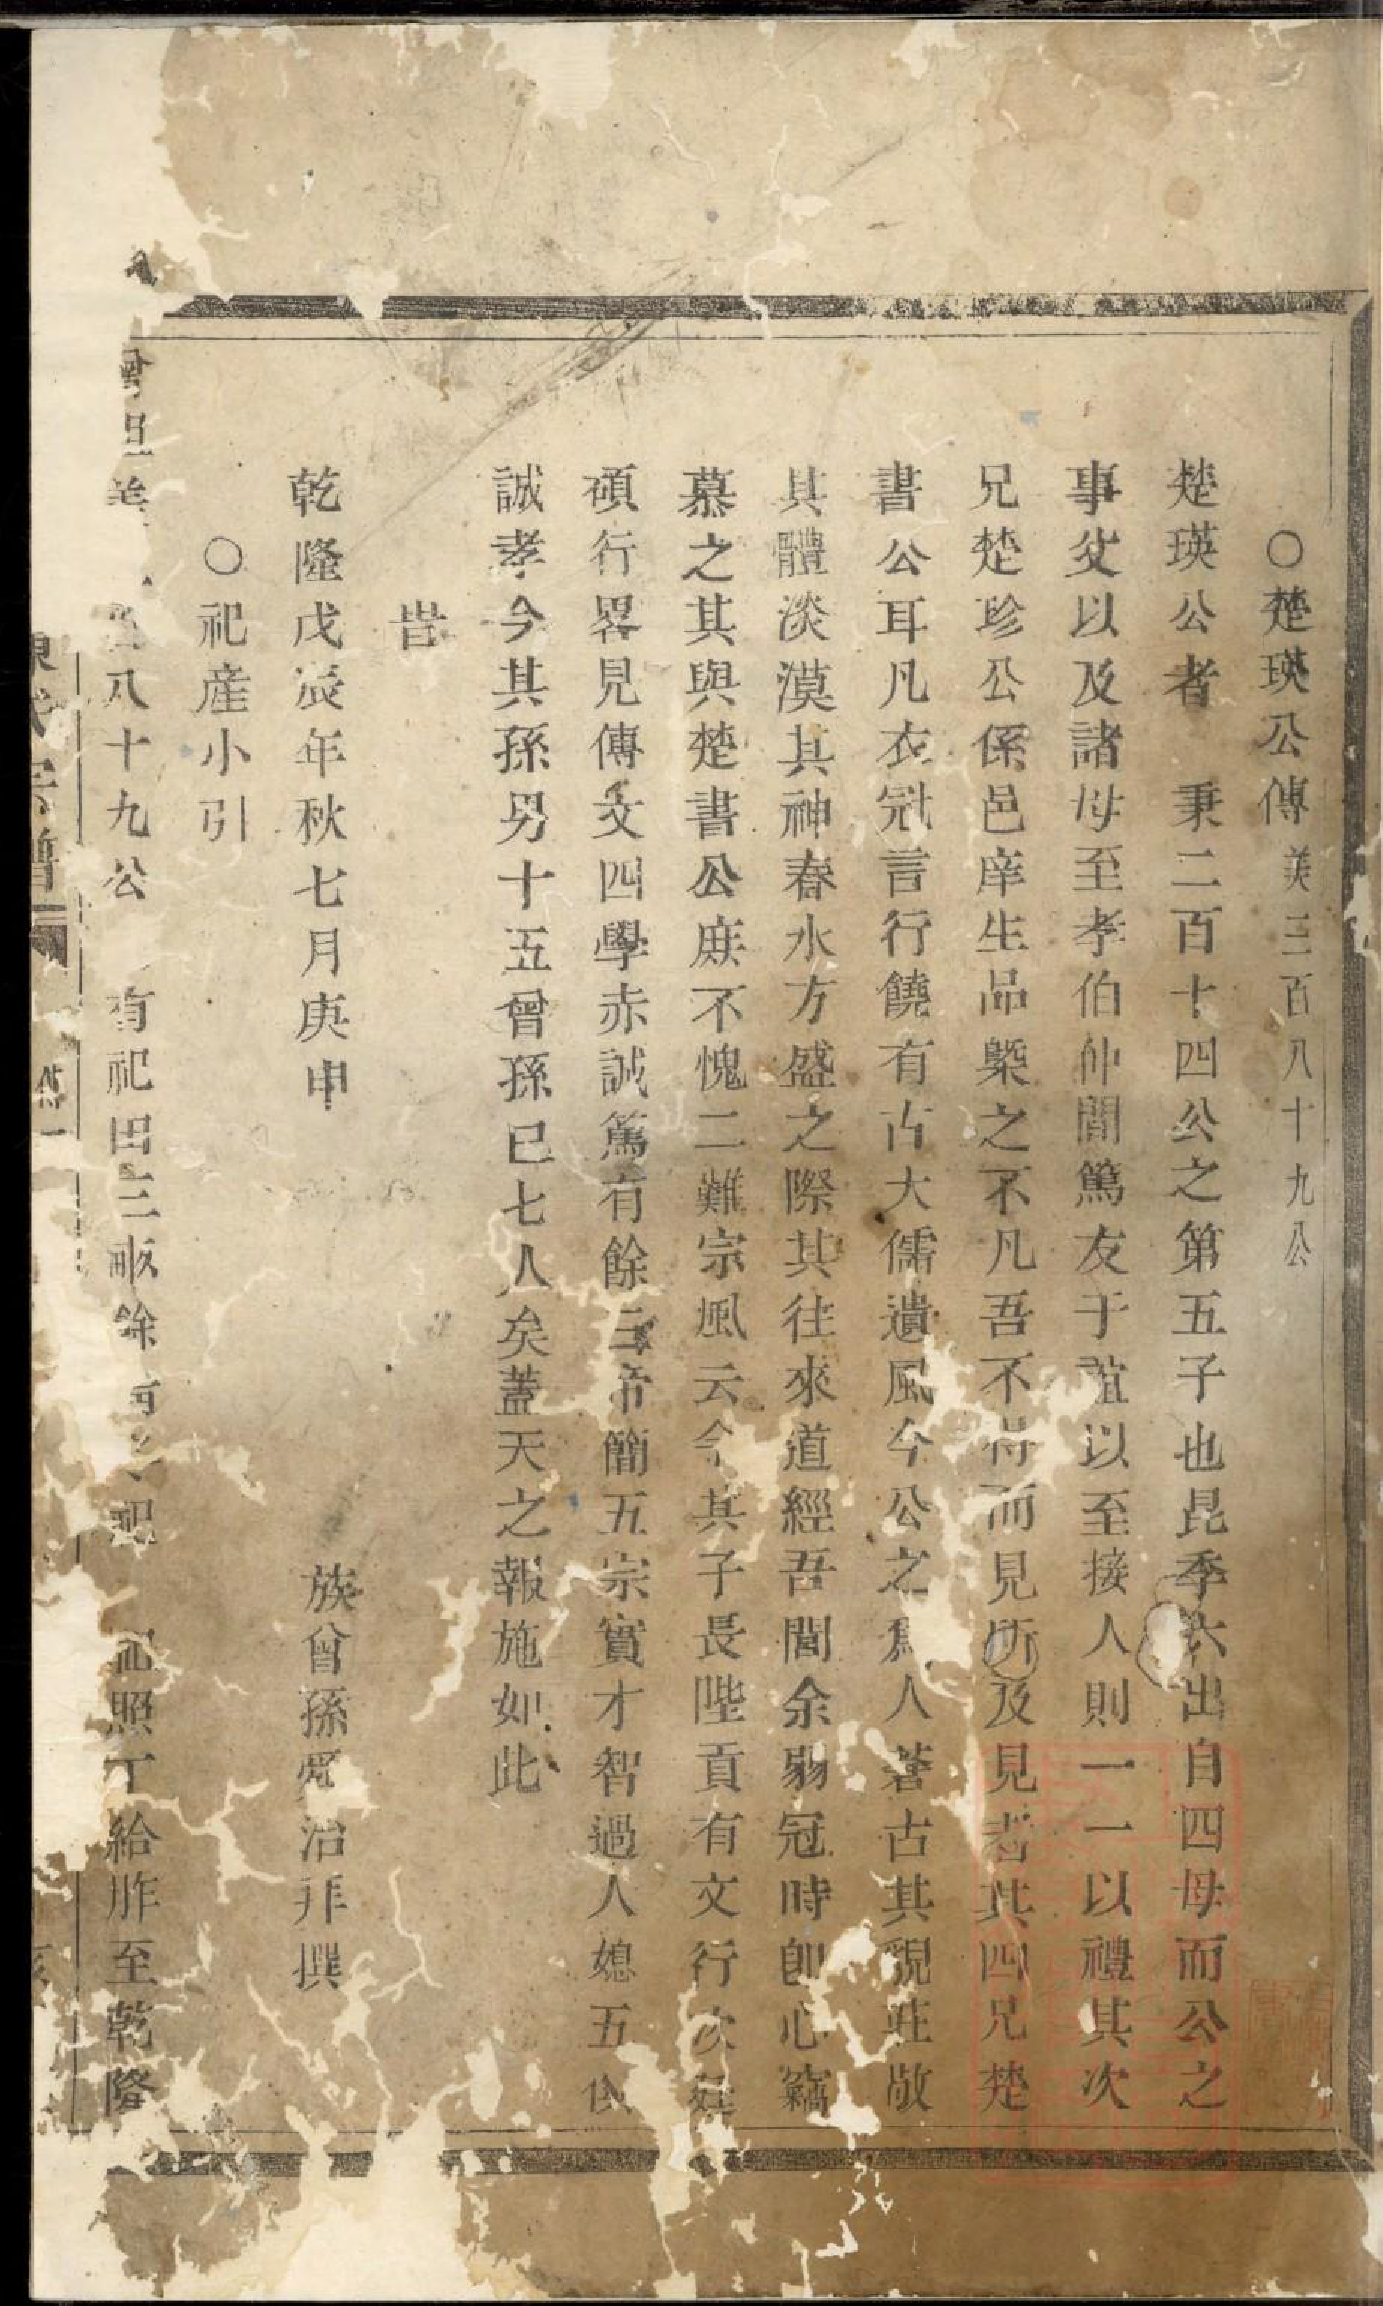 ○楚瑛公傳 美三百八十九公
楚瑛公者 秉二百十四公之第五子也昆季六出自四母而公之
事父以及諸母至孝伯仲間篤友于誼以至接人則一一以禮其次
兄楚珍公係邑庠生品槩之不凡吾不得而見所及見者其四兄楚
書公耳凡衣冠言行饒有古大儒遺風今公之爲人蒼古其貌莊敬
其體淡漠其神春水方盛之際其往來道經吾閭余弱冠時卽心竊
慕之其與楚書公庶不愧二難宗風云今其子長陛貢有文行次廷
碩行畧見傳文四學赤誠篤有餘三 簡五宗實才智過人媳五俱
誠孝今其孫男十五曾孫已七人矣蓋天之報施如此
旹
乾隆戊辰年秋七月庚申 族曾孫 治拜撰
○祀産小引
八十九公 有祀田三畝餘 祀 祀照丁給胙至乾隆
氏宗譜 傳一